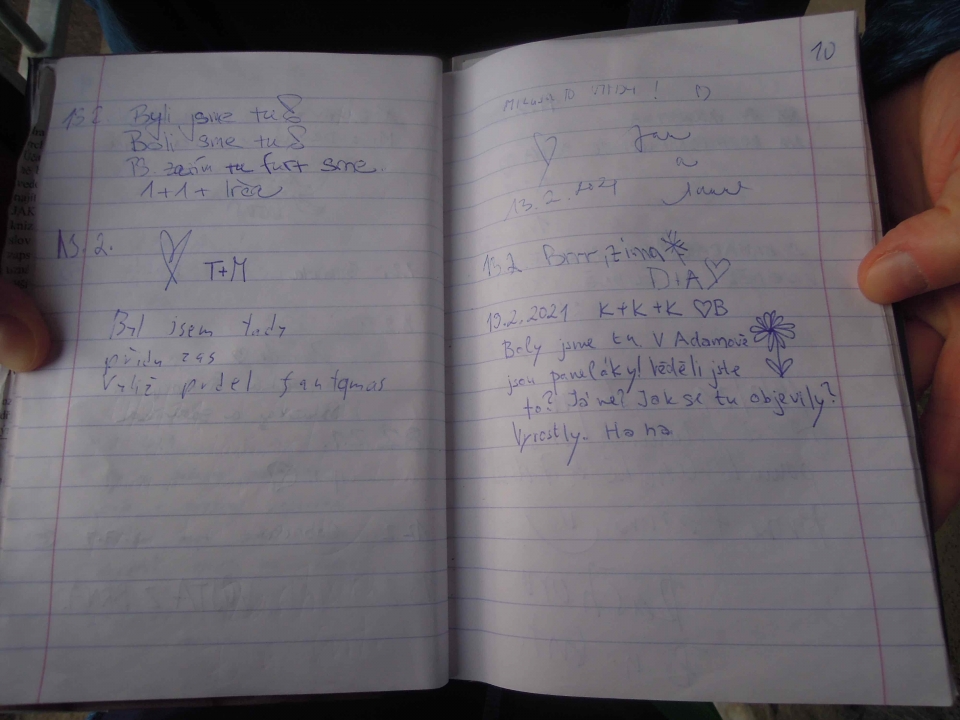 13.2. Byli jsme tu
Byli sme tu
B. zaön tu furt sme.
1+1+
13.2.
T+M
Byl jsem tady
přidu zas
přidel fantomas
10
to !
Jan
a
13.2.2021
13.2 Brrr, zima
D+A
19.2.2021 K+K+K ♡B
Boly jsme tu V Adamově
jsou paneláky! Věděli jste
to? Já ne? Jak se tu objevily?
Vyrostly. Ha ha